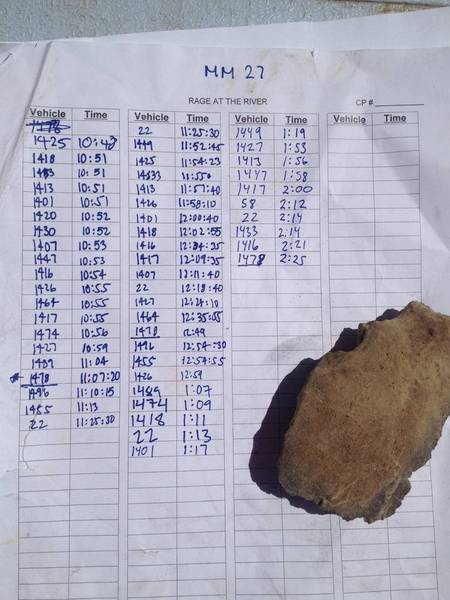 MM 27
RAGE AT THE RIVER
CP #
Vehicle Time
1425 10:48
1418 10:51
10:51
1413 10:51
1401 10:51
1420 10:52
1430 10:52
1407 10:53
1447 10:53
1416 10:54
1426 10:55
1464 10:55
1417 10:55
1474 10:56
1427 10:59
1489 11:04
* 1478 11:07:20
1496 11:10:15
1455 11:13
22 11:25:30
Vehicle Time
22 11:25:30
1449 11:52:45
1425 11:54:23
11:55
1413 11:57:40
1426 11:58:10
1401 12:00:40
1418 12:02:55
1416 12:04:25
1417 12:09:35
1407 12:11:40
22 12:18:40
1427 12:24:10
1464 12:35:55
1478 12:49
1496 12:54:30
1455 12:54:55
1426 12:59
1489 1:07
1474 1:09
1418 1:11
22 1:13
1401 1:17
Vehicle Time
1449 1:19
1427 1:53
1413 1:56
1447 1:58
1417 2:00
58 2:12
22 2:14
1433 2:14
1416 2:21
1478 2:25
Vehicle Time